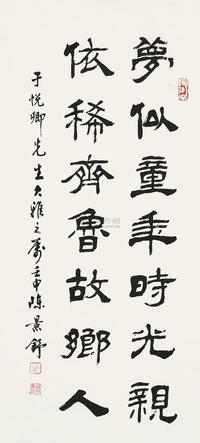 夢似童年時光親
依稀齊魯故鄉人
于悦卿先生大雅之属壬申陈景舒